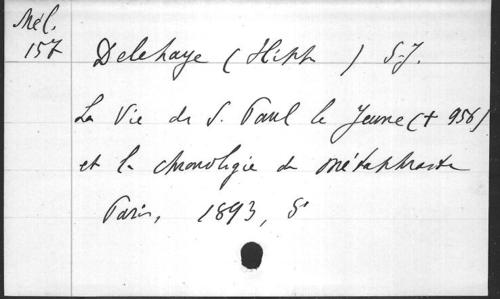 Mél.
157
Delehaye (Hipp ) S.J.
La Vie de S. Paul le Jeune (+ 956)
et la chronologie de Métaphraste
Paris, 1893, 8°